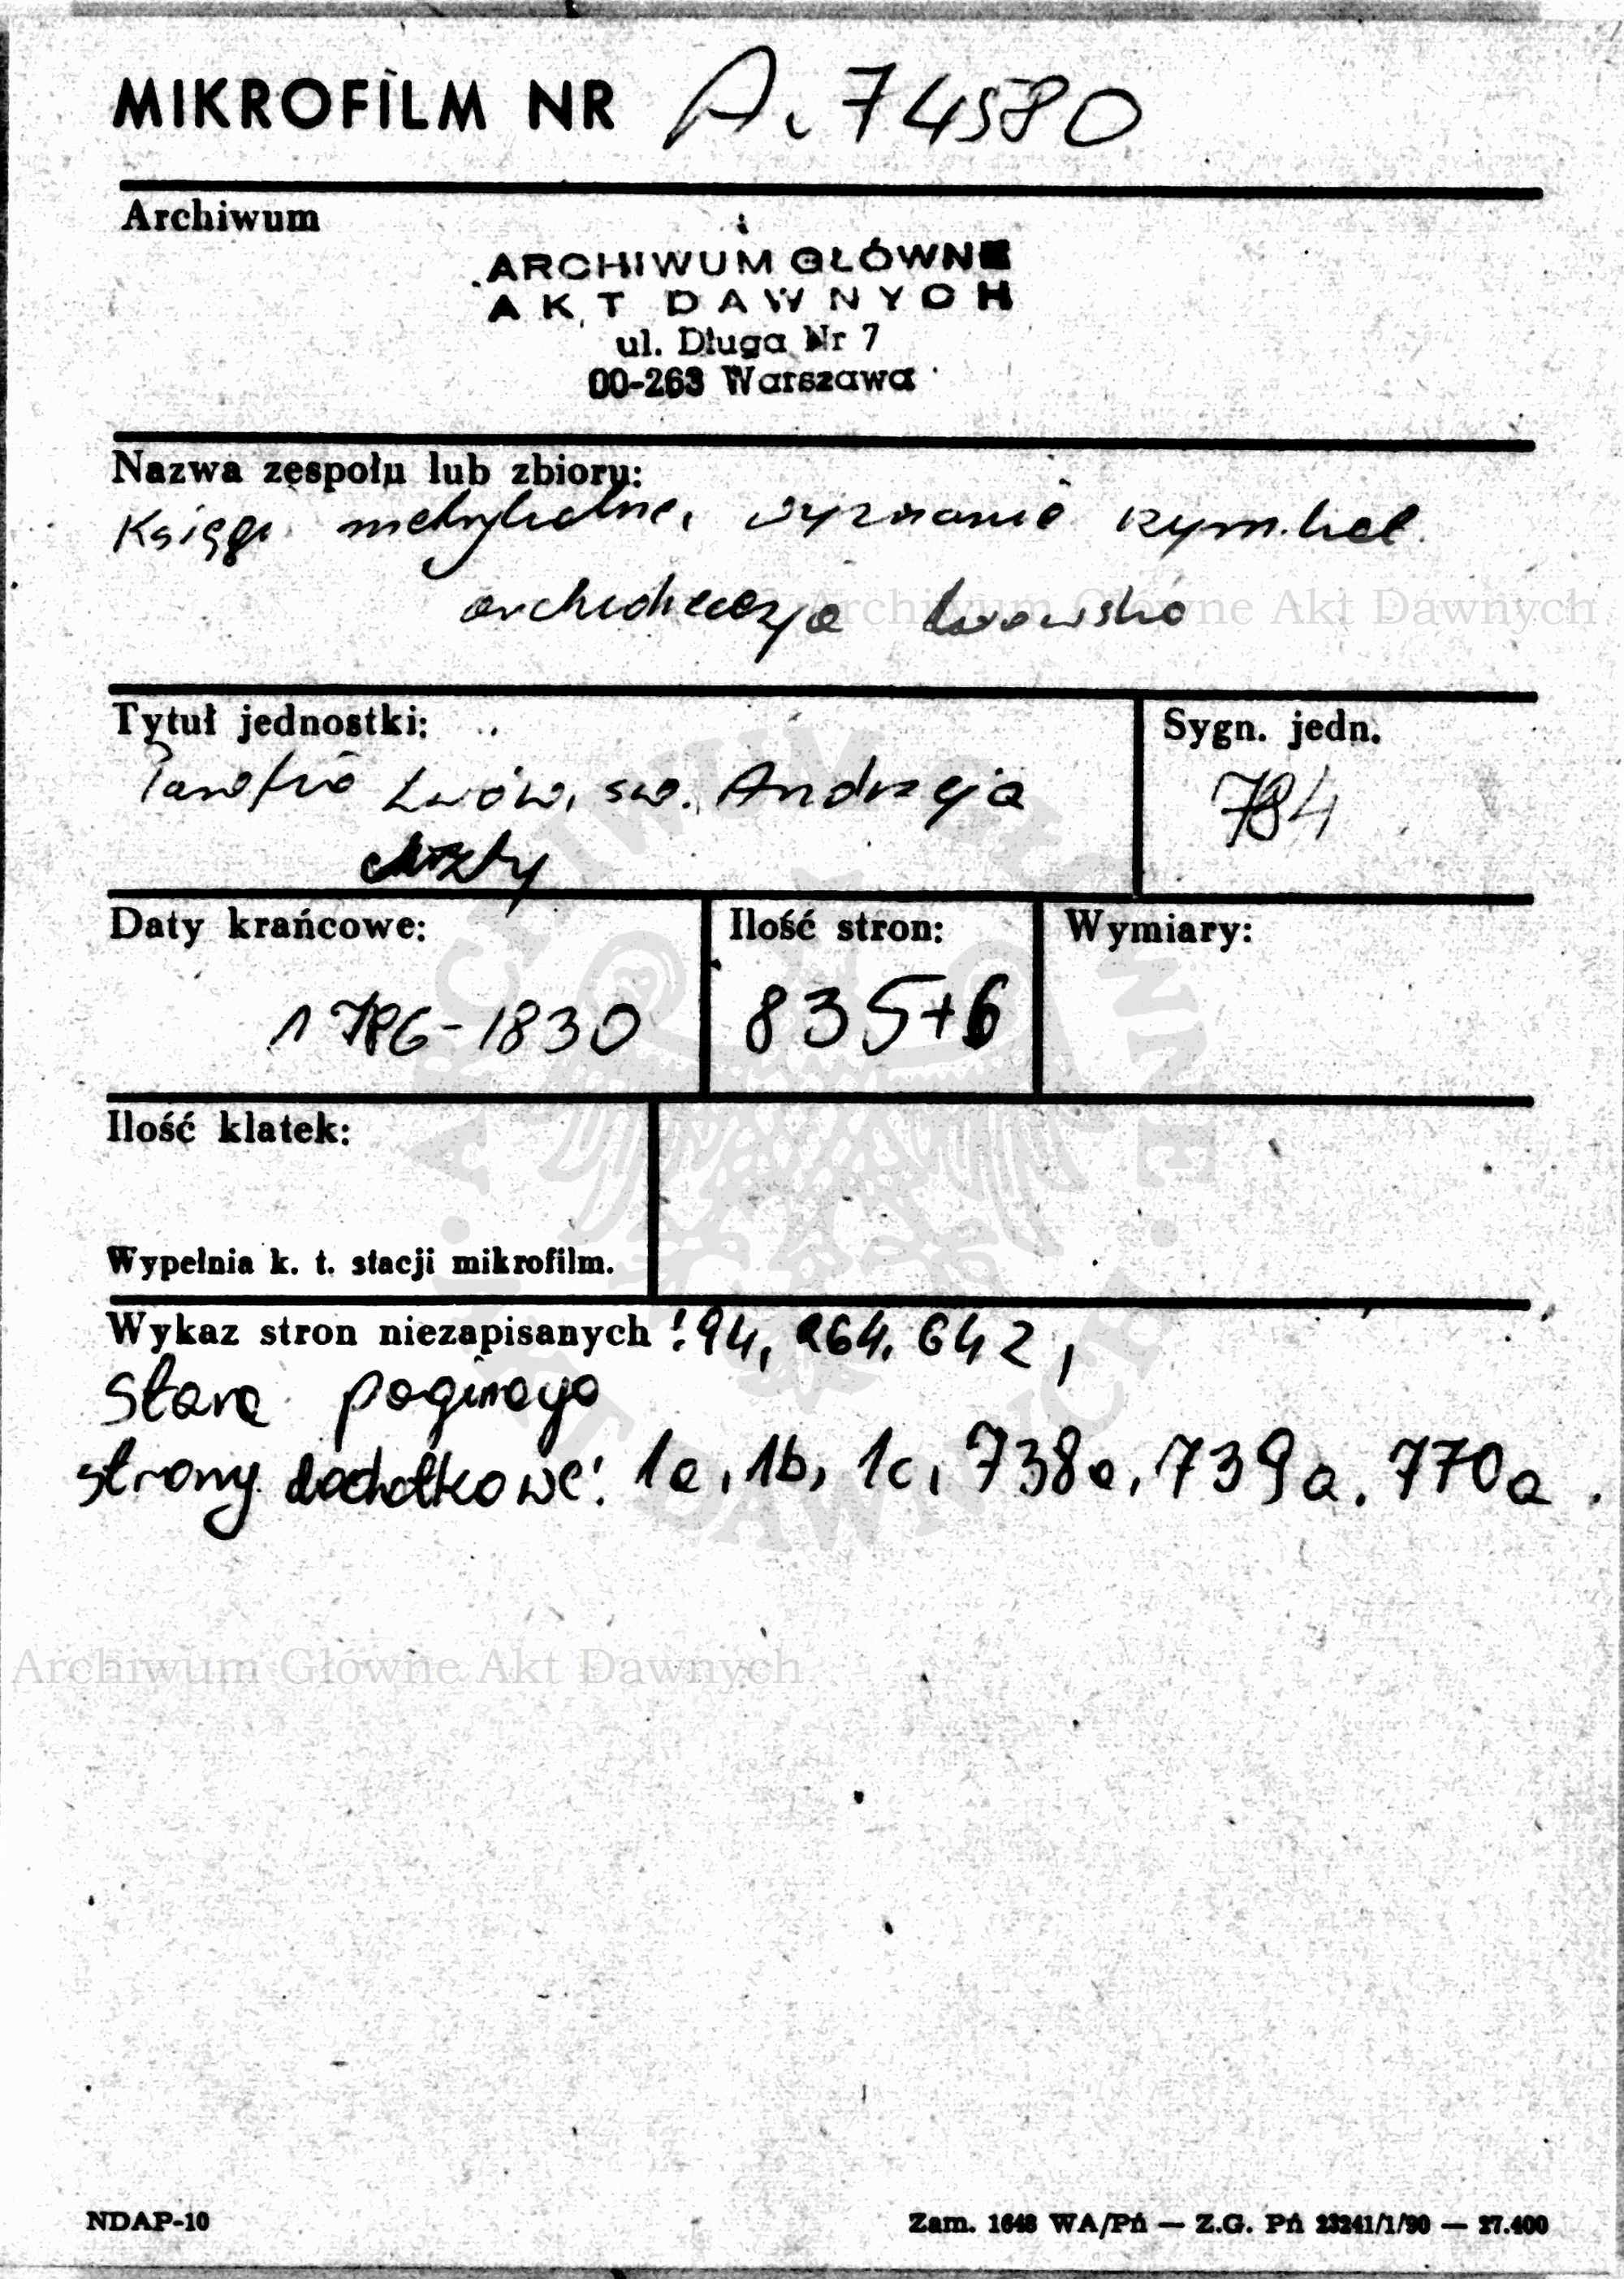 MIKROFILM NR A. 74580
Archiwum
ARCHIWUM GŁÓWNE
AKT DAWNYCH
ul. Długa Nr 7
00-263 Warszawa
Nazwa zespołu lub zbioru:
Księgi metrykalne, wyznanie rzym. kat.
archidiecezja lwowska
Archiwum Główne Akt Dawnych
Tytuł jednostki:
Sygn. jedn.
Parafia Lwów, św. Andrzeja
784
chrzty
Daty krańcowe:
Ilość stron:
Wymiary:
1786-1830
835+6
Ilość klatek:
Wypełnia k. t. stacji mikrofilm.
Wykaz stron niezapisanych: 94, 264, 642,
Stara paginacja
strony dodatkowe: 1a, 1b, 1c, 738a, 739a, 770a.
Archiwum Główne Akt Dawnych
NDAP-10
Zam. 1648 WA/Pń — Z.G. Pń 23241/1/90 — 27.400
ARCHIWUM GŁÓWNE · AKT DAWNYCH ·